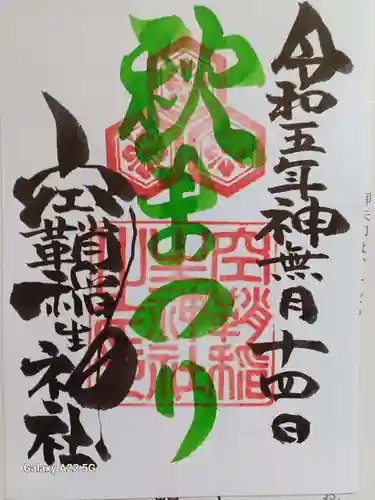 令和五年神無月十四日
秋まつり
空鞘稲生神社
Galaxy A22 5G